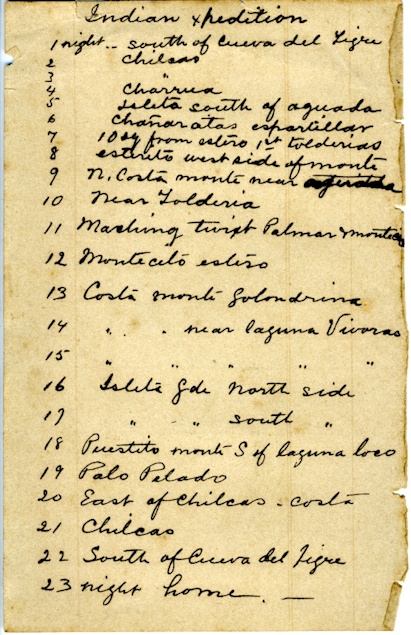 Indian xpedition
1 night .. south of Cueva del Tigre
2 Chilcas
3 "
4 Charrua
5 Isleta south of aguada
6 Chañaratas espartillar
7 10 sq from estero 1st tolderias
8 esterito west side of monte
9 N. Costa monte near
10 Near Tolderia
11 Mashing twixt Palmar & monticito
12 Montecito estero
13 Costa monte Golondrina
14 " . " near laguna Vivoras
15 " " " " "
16 Isleta Gde North side
17 " - " south "
18 Puestito monte S of laguna loco
19 Palo Pelado
20 East of Chilcas - costa
21 Chilcas
22 South of Cueva del Tigre
23 night home. —